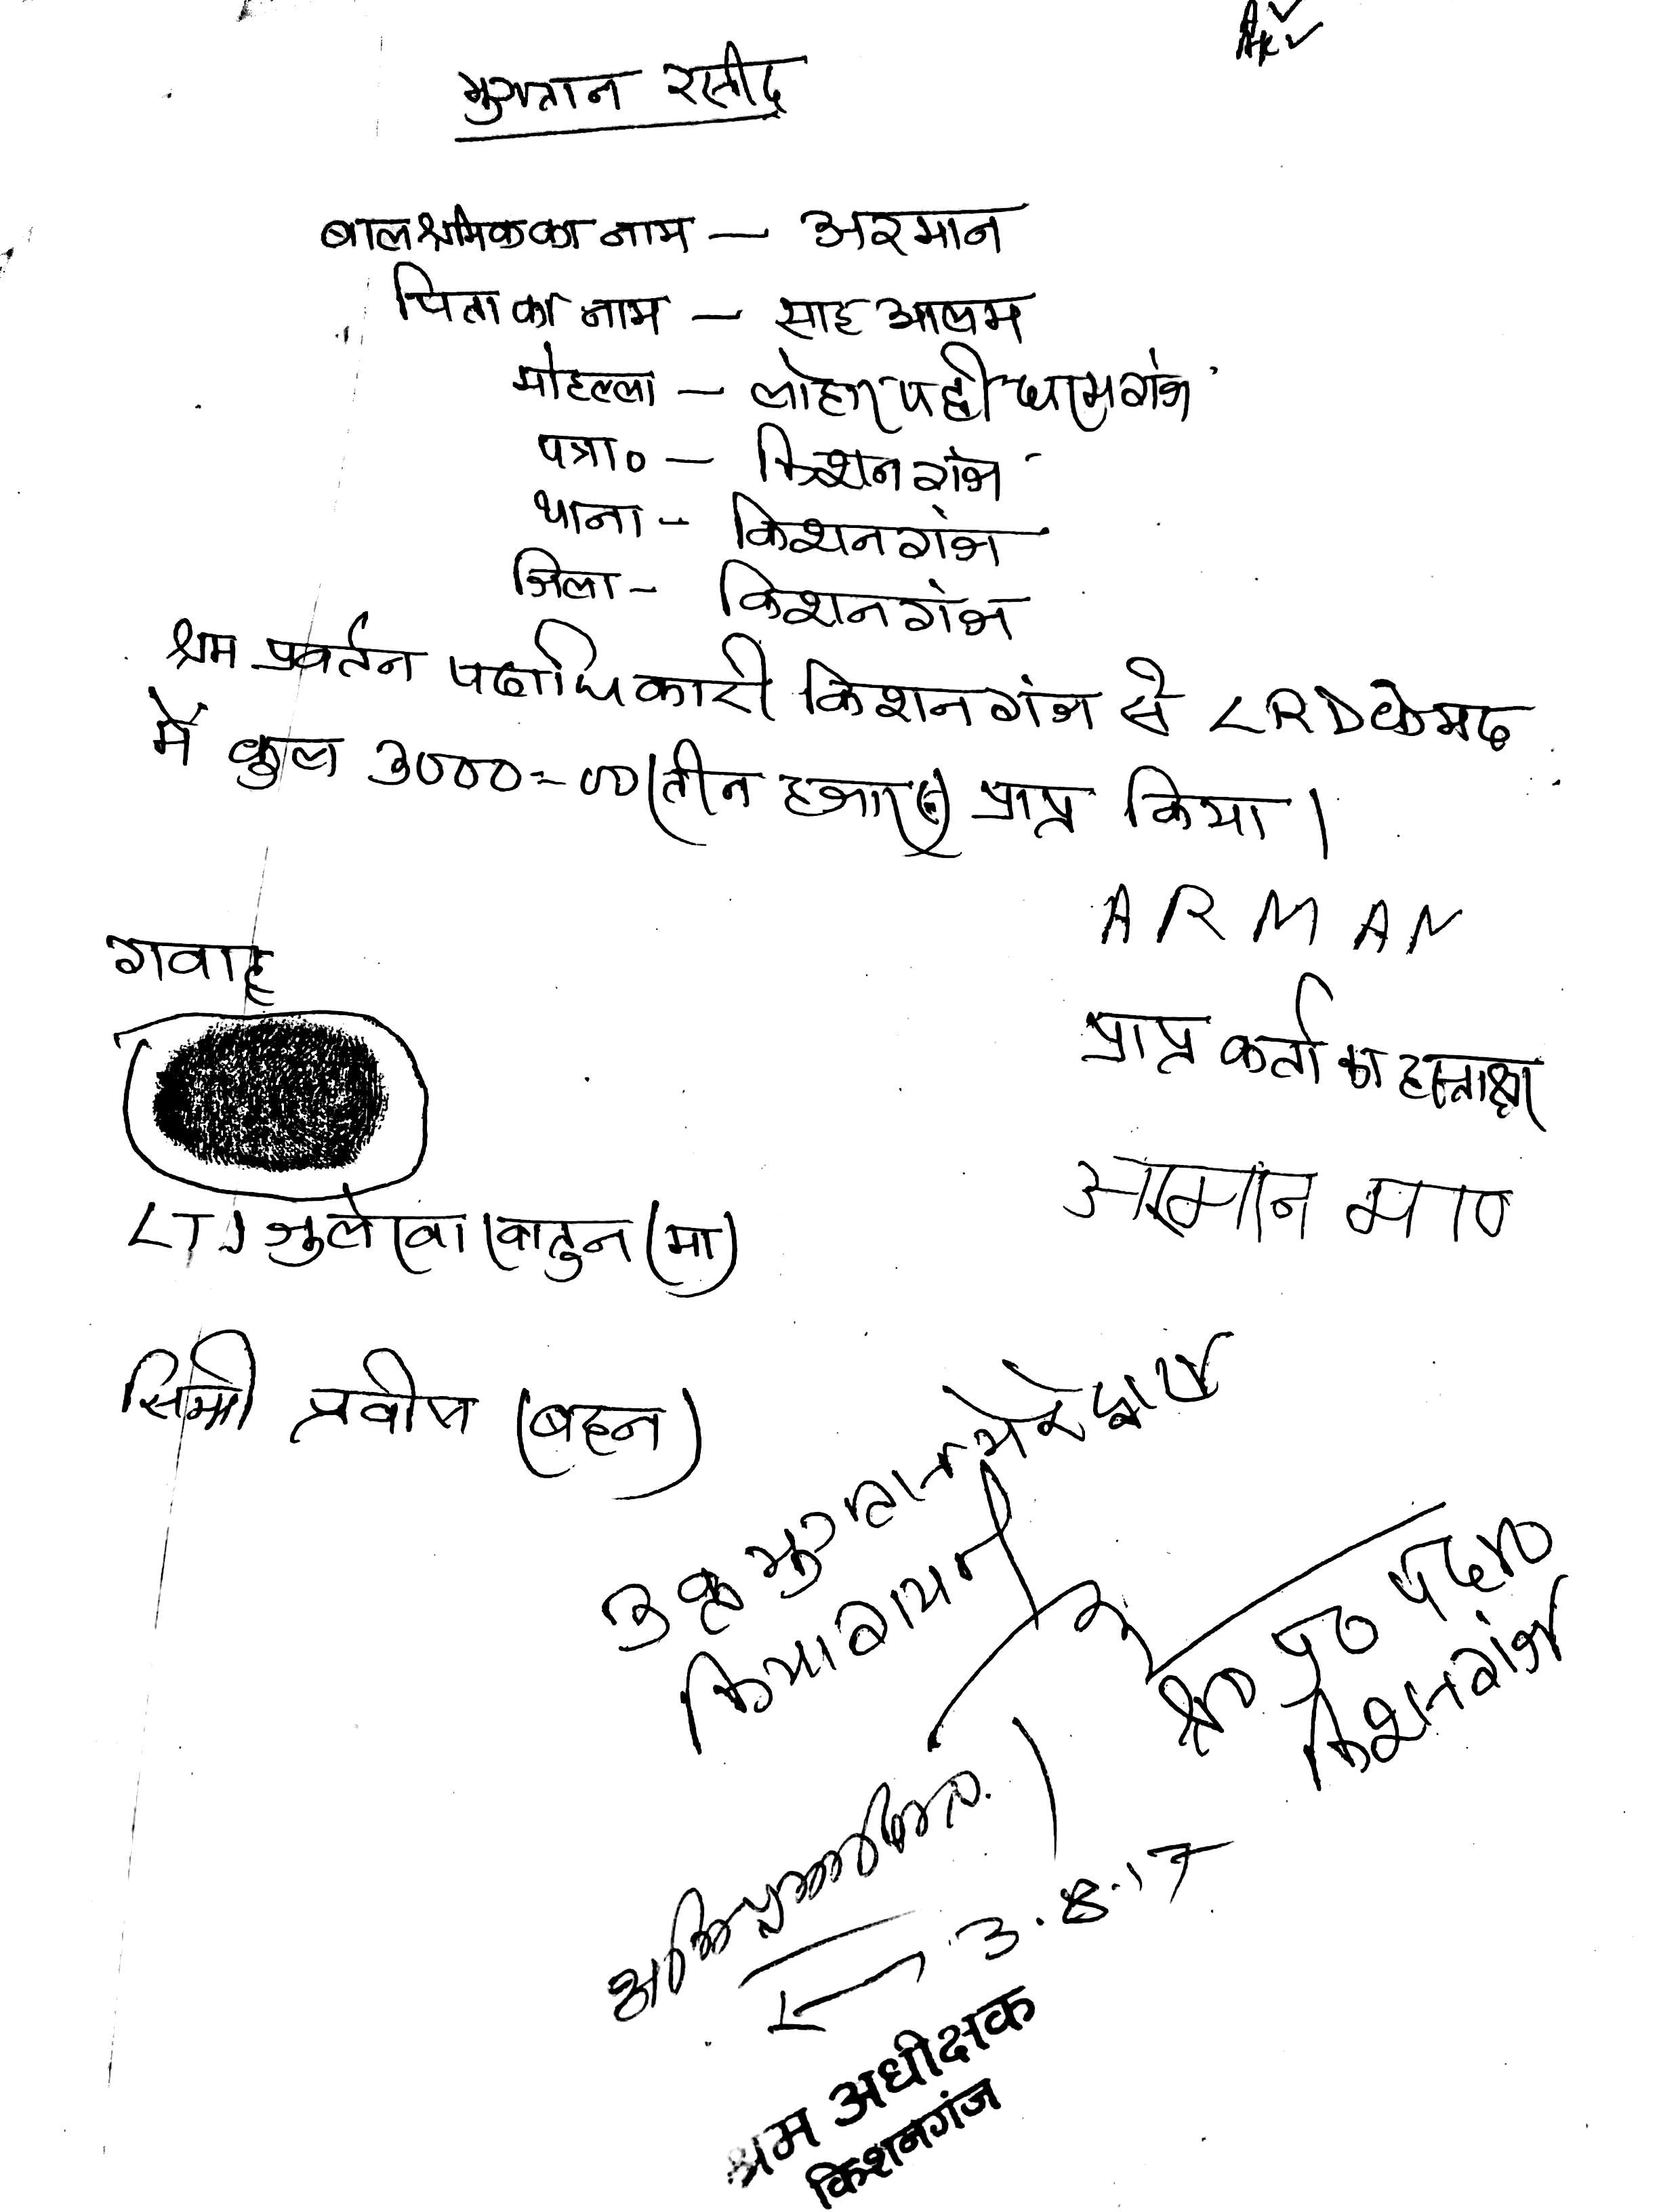 भुगतान रसीद
बाल श्रमिक का नाम – अरमान
पिता का नाम – साह आलम
मोहल्ला – लोहारपट्टी धरमगंज
पत्रा० – किशनगंज
थाना – किशनगंज
जिला – किशनगंज
श्रम प्रवर्तन पदाधिकारी किशनगंज से LRD के मद
में कुल 3000=00 (तीन हजार रू) प्राप्त किया।
ARMAN
गवाह
प्राप्त कर्ता का हस्ताक्षर
अरमान
LTI जुलेखा खातुन (मा)
सिम्मी प्रवीण (बहन)
उक्त भुगतान मेरे द्वारा
किया गया।
श्र० प्र० पदा०
किशनगंज
अभिप्रमाणित
3.8.17
श्रम अधीक्षक
किशनगंज